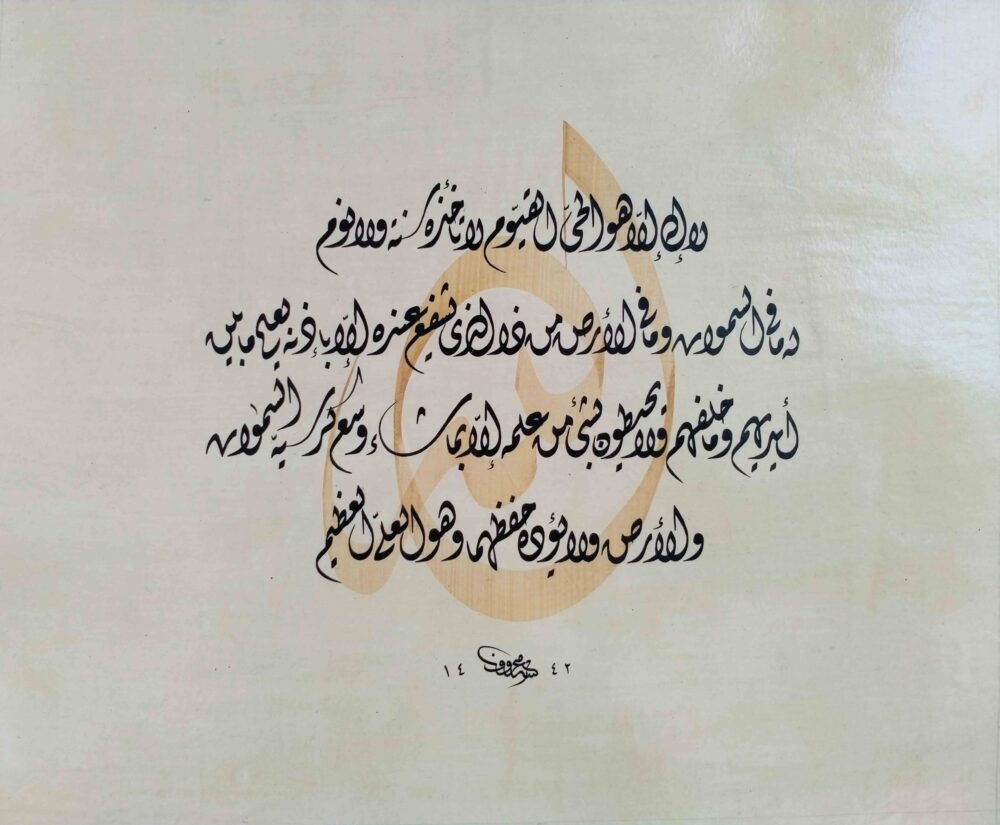 لا إله إلّا هو الحيّ القيّوم لا تأخذه سنة ولا نوم
له ما في السموات وما في الأرض من ذا الذي يشفع عنده إلّا بإذنه يعلم ما بين
أيديهم وما خلفهم ولا يحيطون بشئ من علمه إلّا بما شاء وسع كرسيه السموات
والأرض ولا يؤده حفظهما وهو العليّ العظيم
١٤ ٤٢